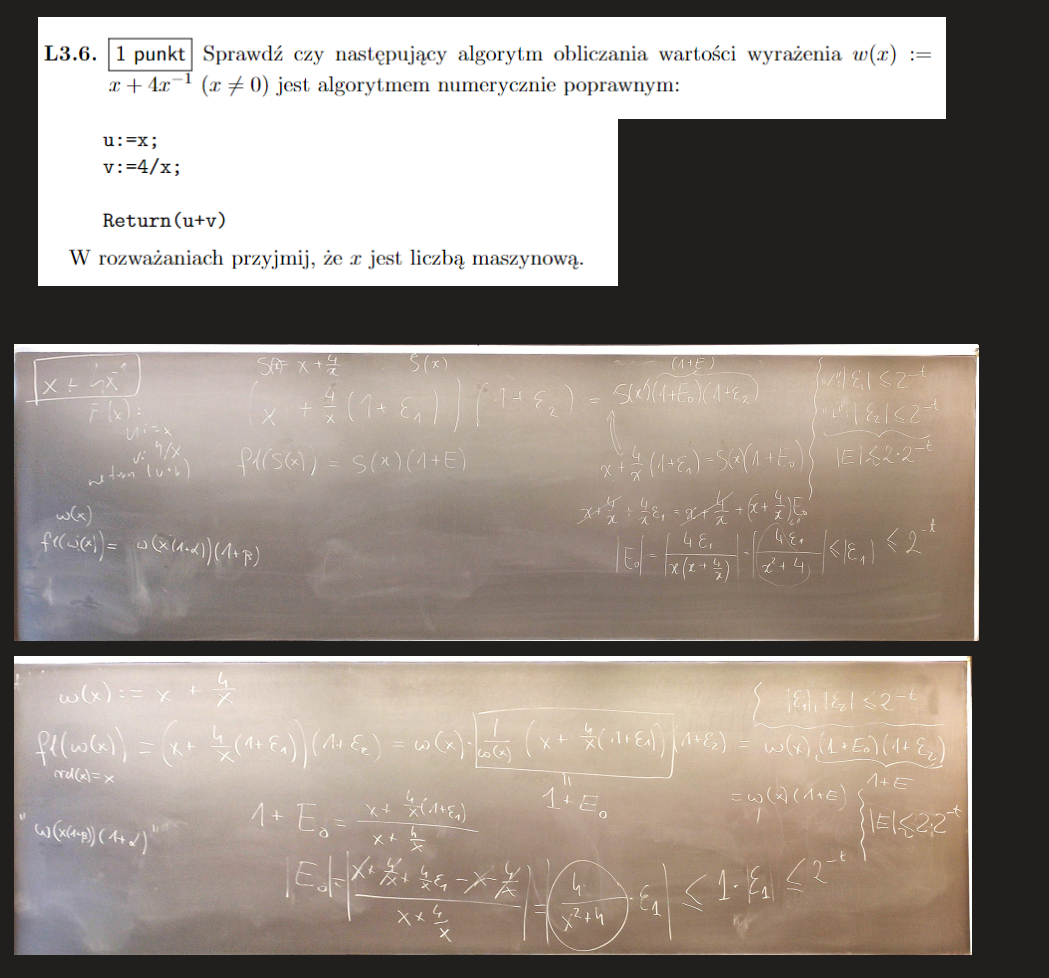 L3.6. 1 punkt Sprawdź czy następujący algorytm obliczania wartości wyrażenia w(x) :=
x + 4x⁻¹ (x ≠ 0) jest algorytmem numerycznie poprawnym:
u:=x;
v:=4/x;
Return(u+v)
W rozważaniach przyjmij, że x jest liczbą maszynową.
x + 4x⁻¹
F(x):
u:=x
v: 4/x
return (u+v)
w(x)
fl(w(x)) = w(x(1+α))(1+β)
x + 4/x
S(x)
(x + 4/x (1+ε₁)) (1+ε₂) = S(x)(1+E₀)(1+ε₂)
(1+E)
fl(S(x)) = S(x)(1+E)
x + 4/x (1+ε₁) = S(x)(1+E₀)
x + 4/x + 4/x ε₁ = x + 4/x + (x + 4/x)E₀
|E₀| = |4ε₁ / x(x + 4/x)| = |4ε₁ / x²+4| ≤ |ε₁| ≤ 2⁻ᵗ
|ε₁| ≤ 2⁻ᵗ
|ε₂| ≤ 2⁻ᵗ
|E| ≲ 2·2⁻ᵗ
w(x) := x + 4/x
{ |ε₁|, |ε₂| ≤ 2⁻ᵗ
fl(w(x)) = (x + 4/x (1+ε₁))(1+ε₂) = w(x) · 1/w(x) (x + 4/x (1+ε₁)) (1+ε₂) = w(x) (1+E₀)(1+ε₂)
rd(x)=x
1+E₀
1+E
= w(x)(1+E)
|E| ≲ 2·2⁻ᵗ
"w(x(1+β))(1+α)"
1+E₀ = x + 4/x (1+ε₁) / x + 4/x
|E₀| = |x + 4/x + 4/x ε₁ − x − 4/x / x + 4/x| = |4 / x²+4 · ε₁| ≤ 1·|ε₁| ≤ 2⁻ᵗ